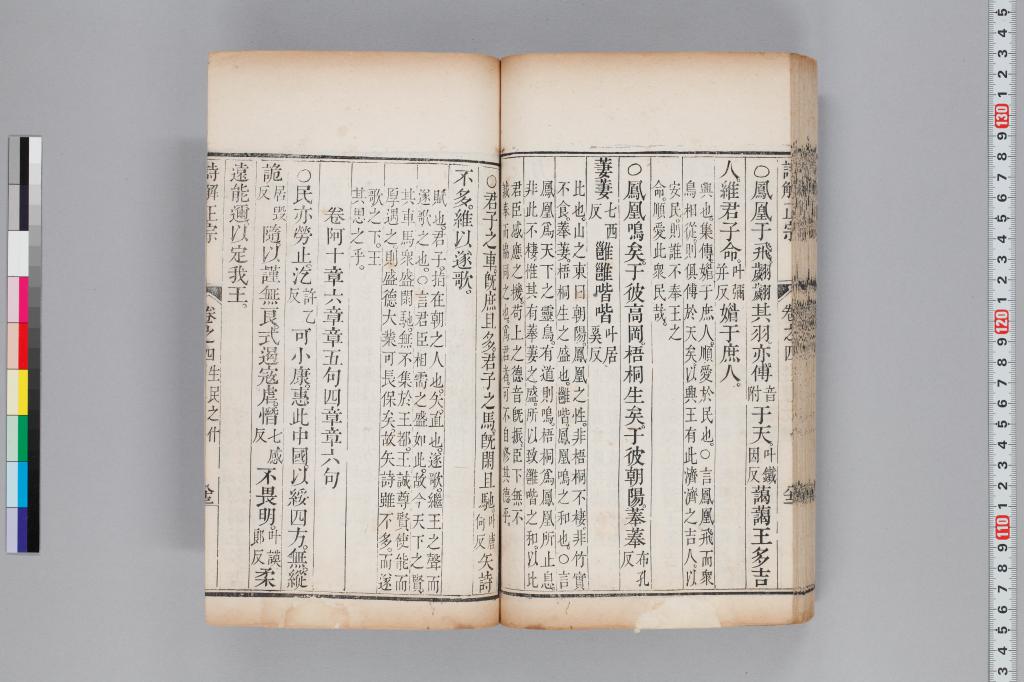 詩解正宗
卷之四
〇鳳凰于飛翽翽其羽亦傅音附于天叶鐵因反藹藹王多吉
人維君子命叶彌并反媚于庶人
興也集傳媚于庶人順愛於民也〇言鳳凰飛而衆
鳥相從則俱傅於天矣以興王有此濟濟之吉人以
安民則誰不奉王之
命順愛此衆民哉
〇鳳凰鳴矣于彼高岡梧桐生矣于彼朝陽菶菶布孔反
萋萋七西反雝雝喈喈叶居奚反
比也山之東曰朝陽鳳凰之性非梧桐不棲非竹實
不食菶萋梧桐生之盛也雝喈鳳凰鳴之和也〇言
鳳凰爲天下之靈鳥有道則鳴梧桐爲鳳凰所止息
非此不棲惟其有菶萋之盛所以致雝喈之和以比
君臣感應之機苟上之德音旣振臣下無不
〇君子之車旣庶且多君子之馬旣閑且馳叶唐何反矢詩
不多維以遂歌
賦也君子指在朝之人也矢直也遂歌繼王之聲而
遂歌之也〇言君臣相需之盛如此故今天下之賢
其車馬衆盛閑馳無不集於王都王誠尊賢使能而
厚遇之則盛德大業可長保矣故矢詩雖不多而遂
歌之下王
其思之乎
卷阿十章六章章五句四章章六句
〇民亦勞止汔許乙反可小康惠此中國以綏四方無縱
詭居毀反隨以謹無良式遏寇虐憯七感反不畏明叶謨郎反柔
遠能邇以定我王
詩解正宗
卷之四
生民之什